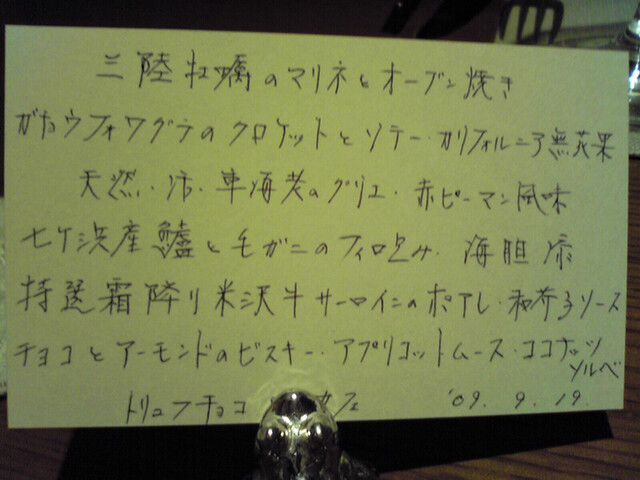 三陸牡蠣のマリネとオーブン焼き
ガカウフォワグラのクロケットとソテー・カリフォルニア無花果
天然・活・車海老のグリエ・赤ピーマン風味
七ケ浜産鱸と毛ガニのフィロ包み・海胆添
特選霜降り米沢牛サーロインのポアレ・和芥子ソース
チョコとアーモンドのビスキー・アプリコットムース・ココナッツ
ソルベ
トリュフチョコ カフェ '09. 9. 19.